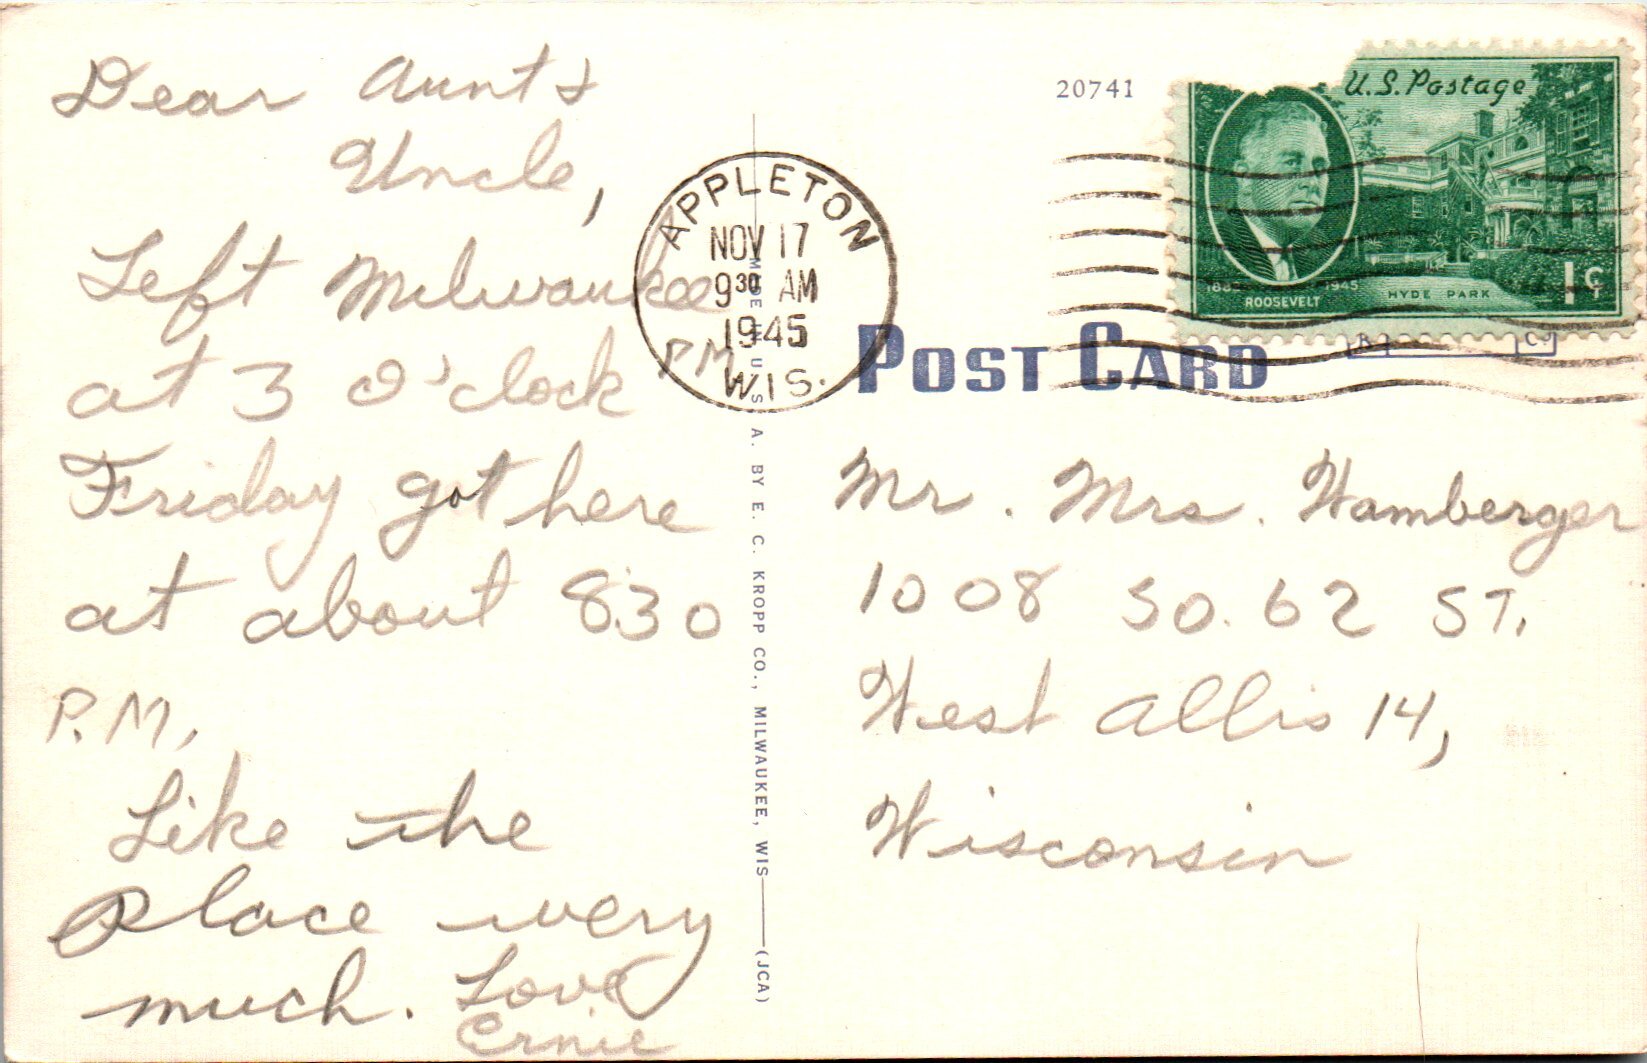 Dear Aunt &
Uncle,
Left Milwaukee
at 3 O'clock P.M.
Friday got here
at about 8:30
P.M.
Like the
place wery
much. Love
Ernie
20741
APPLETON
NOV 17
9 30 AM
1945
WIS.
U.S. Postage
1945
ROOSEVELT
HYDE PARK
1¢
POST CARD
Mr. Mrs. Hamberger
1008 SO. 62 ST.
West Allis 14,
Wisconsin
MADE IN U. S. A. BY E. C. KROPP CO., MILWAUKEE, WIS (JCA)